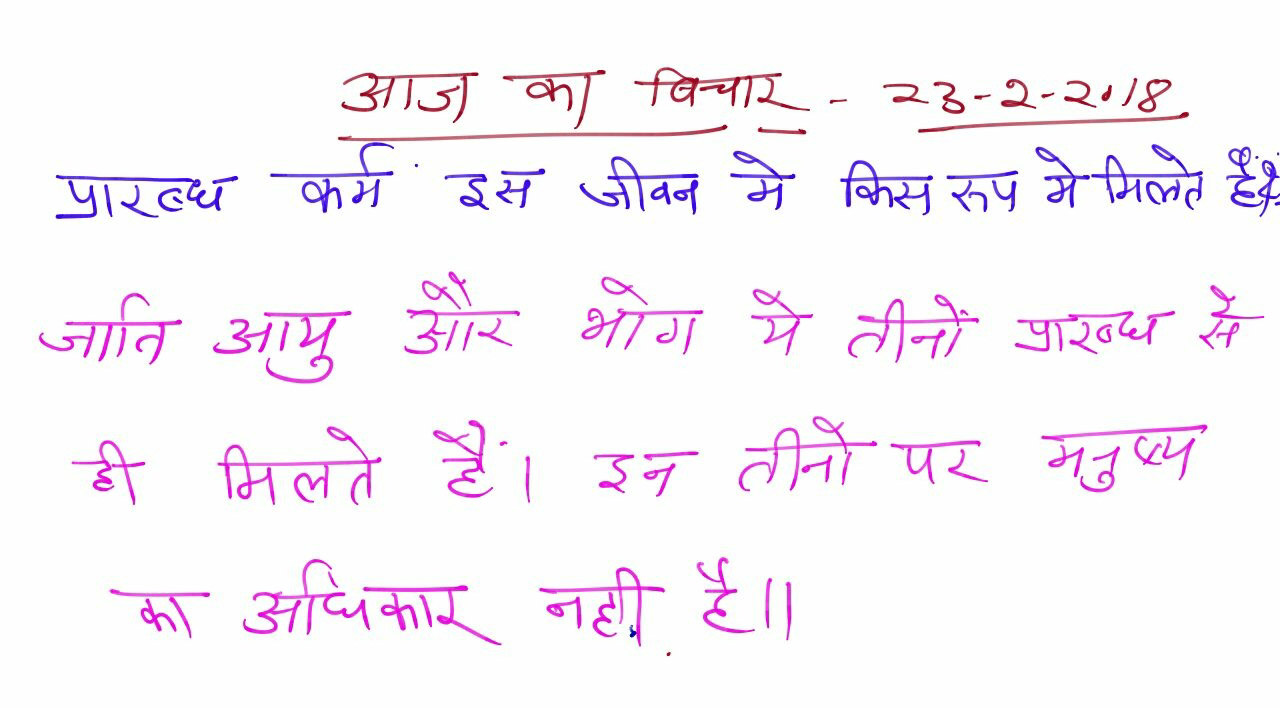 आज का विचार - 23-2-2018
प्रारब्ध कर्म इस जीवन मे किस रुप मे मिलते हैं
जाति आयु और भोग ये तीनों प्रारब्ध से
ही मिलते हैं। इन तीनो पर मनुष्य
का अधिकार नही है॥